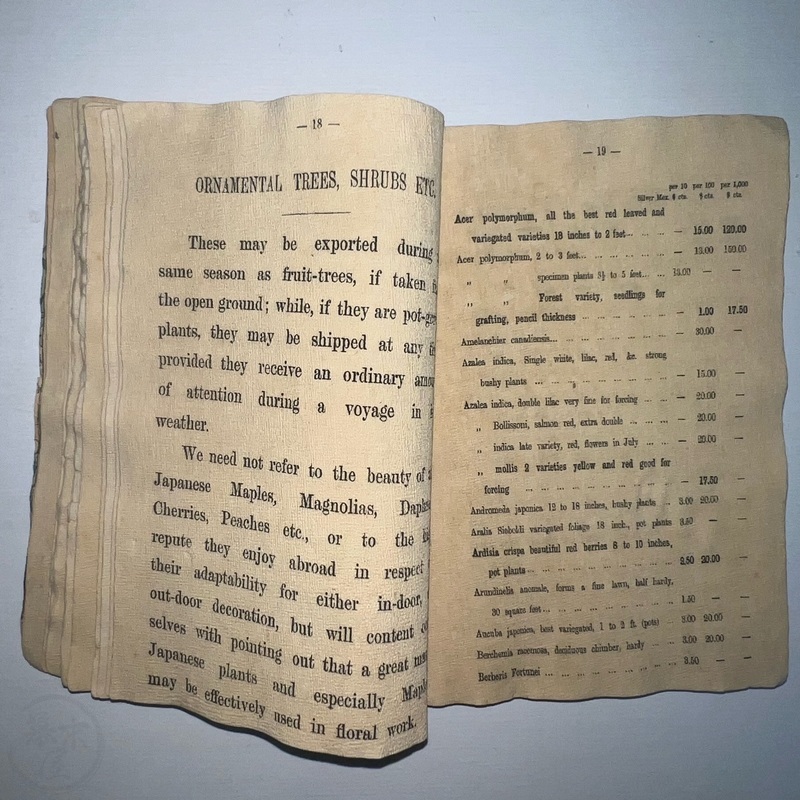 — 18 —
ORNAMENTAL TREES, SHRUBS ETC.
These may be exported during
same season as fruit-trees, if taken
the open ground; while, if they are
plants, they may be shipped at any
provided they receive an ordinary
of attention during a voyage in
weather.
We need not refer to the beauty of
Japanese Maples, Magnolias,
Cherries, Peaches etc., or to the
repute they enjoy abroad in respect
their adaptability for either in-door,
out-door decoration, but will content
selves with pointing out that a great
Japanese plants and especially
may be effectively used in floral work.
— 19 —
per 10 per 100 per 1,000
Silver Mex. $ cts. $ cts. $ cts.
Acer polymorphum, all the best red leaved and
variegated varieties 18 inches to 2 feet... ... ... — 15.00 120.00
Acer polymorphum, 2 to 3 feet... ... ... ... ... — 18.00 150.00
„ „ specimen plants 3½ to 5 feet... ... 13.00 — —
„ „ Forest variety, seedlings for
grafting, pencil thickness ... ... ... ... — 1.00 17.50
Amelanchier canadiensis... ... ... ... ... — 30.00 —
Azalea indica, Single white, lilac, red, &c. strong
bushy plants ... ... ... ... ... ... — 15.00 —
Azalea indica, double lilac very fine for forcing ... — 20.00 —
„ Bollissoni, salmon red, extra double ... ... — 20.00 —
„ indica late variety, red, flowers in July ... ... — 20.00 —
„ mollis 2 varieties yellow and red good for
forcing ... ... ... ... ... ... — 17.50 —
Andromeda japonica 12 to 18 inches, bushy plants ... 3.00 20.00 —
Aralia Sieboldi variegated foliage 18 inch., pot plants 3.50 — —
Ardisia crispa beautiful red berries 8 to 10 inches,
pot plants ... ... ... ... ... ... 2.50 20.00 —
Arundinella anomale, forms a fine lawn, half hardy,
30 square feet... ... ... ... ... ... 1.50 — —
Aucuba japonica, best variegated, 1 to 2 ft. (pots) ... 3.00 20.00 —
Berchemia racemosa, deciduous climber, hardy ... 3.00 20.00 —
Berberis Fortunei ... ... ... ... ... ... 3.50 — —